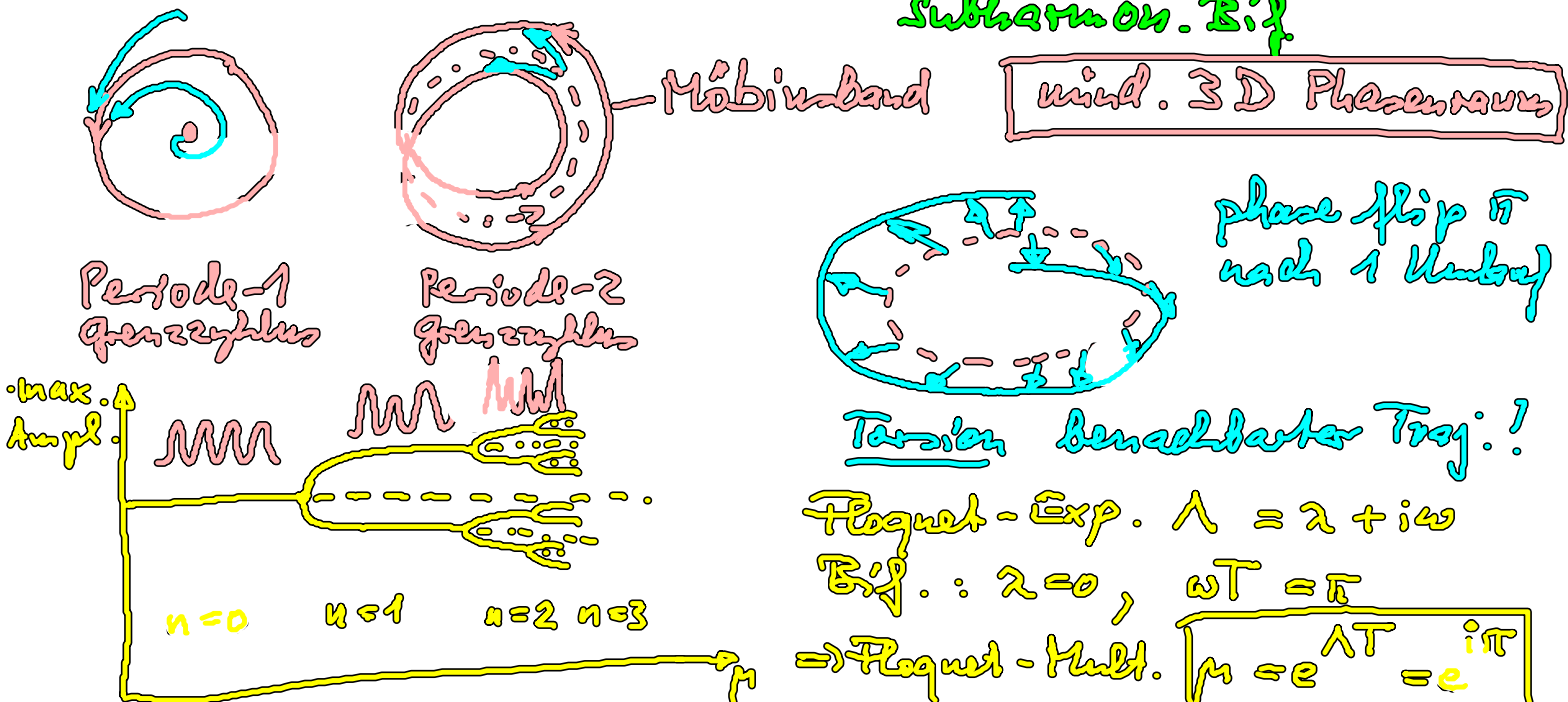 Subharmon. Bif.
Möbiusband
mind. 3D Phasenraum
Periode-1
grenzzyklus
Periode-2
grenzzyklus
phase flip π
nach 1 Umlauf
max.
Ampl.
n=0
n=1
n=2 n=3
μ
Torsion benachbarter Traj.!
Floquet-Exp. Λ = λ + iω
Bif.: λ=0, ωT = π
=> Floquet-Mult. μ = e^{ΛT} = e^{iπ}